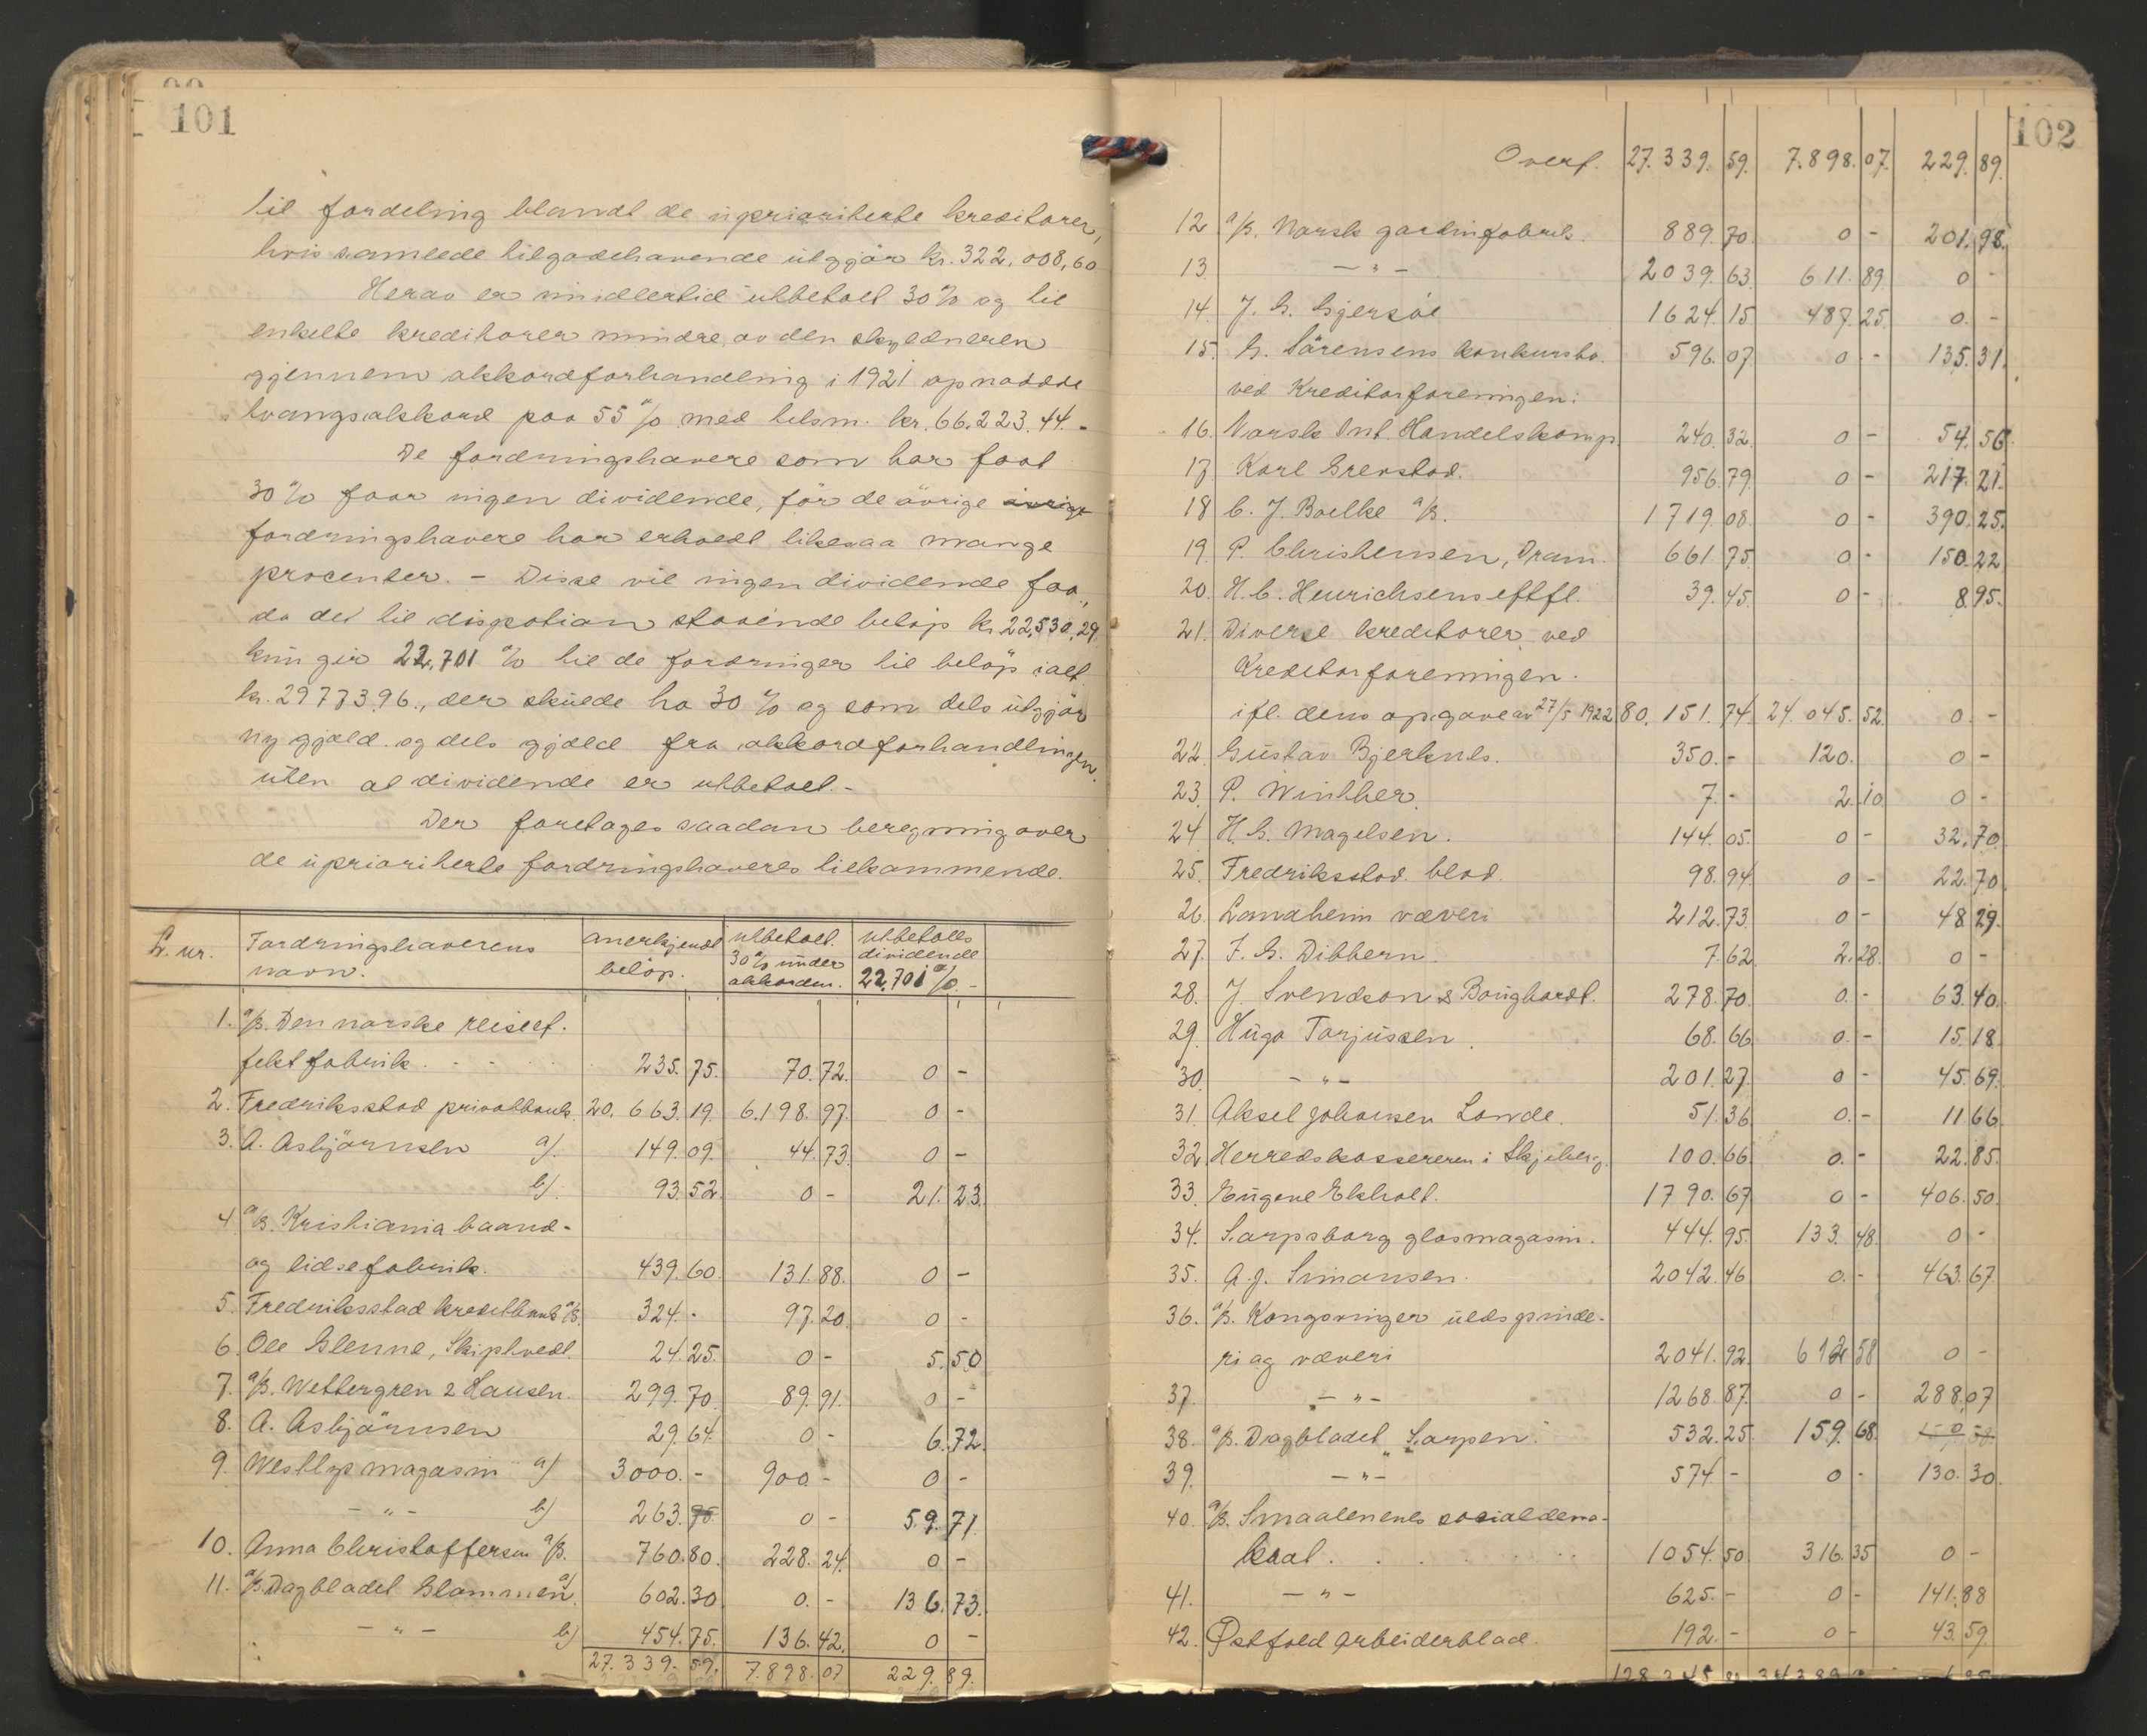 101
til fordeling blandt de uprioriterte kreditorer,
hvis samlede tilgodehavende utgjør kr. 322.008,60
Herav er imidlertid utbetalt 30% og til
enkelte kreditorer mindre, av den skyldneren
gjennem akkordforhandling i 1921 opnaadde
tvangsakkord paa 55% med tilsm. kr. 66.223.44.-
De fordringshavere som har faat
30% faar ingen dividende, før de øvrige øvrige
fordringshavere har erholdt likesaa mange
procenter. - Disse vil ingen dividende faa,
da det til disposition staaende beløp kr. 22,530,29
kun gir 22,701 % til de fordringer til beløp ialt
kr. 29773.96., der skulde ha 30% og som dels utgjør
ny gjæld og dels gjæld fra akkordforhandlingen
uten at dividende er utbetalt.-
Der foretages saadan beregning over
de uprioriterte fordringshaveres tilkommende.
L. nr. Fordringshaverens navn. anerkjendt beløp. utbetalt 30% under akkorden. utbetales dividende 22,701 %.-
1. A/S. Den norske reiseef-
fektfabrik. 235.75. 70.72. 0 -
2. Fredriksstad privatbank 20.663.19. 6.198.97. 0 -
3. A. Asbjørnsen a). 149.09. 44.73. 0 -
b). 93.52. 0 - 21.23.
4. A/S. Kristiania baand-
og lidsefabrik. 439.60. 131.88. 0 -
5. Fredriksstad kreditbank A/S. 324.- 97.20. 0 -
6. Ole Glenne, Skiptvedt. 24.25. 0 - 5.50
7. A/S. Wettergren & Hansen. 299.70. 89.91. 0 -
8. A. Asbjørnsen 29.64. 0 - 6.72.
9. Westlys magasin a) 3000.- 900.- 0 -
- " - b) 263.75. 0 - 59.71.
10. Anna Christoffersen A/S. 760.80. 228.24. 0 -
11. A/S. Dagbladet Glommen a) 602.30 0.- 136.73.
- " - b) 454.75. 136.42. 0 -
27.339.59. 7.898.07 229.89.
102
Overf. 27.339.59. 7.898.07. 229.89.
12 A/S. Norsk gardinfabrik. 889.70. 0 - 201.98.
13. - " - 2039.63. 611.89. 0 -
14. J. G. Gjersøe 1624.15 487.25. 0.-
15. G. Sørensens konkursbo. 596.07. 0 - 135.31.
ved Kreditorforeningen:
16. Norsk Int. Handelskomp. 240.32. 0 - 54.56.
17. Karl Grenstad. 956.79. 0 - 217.21.
18 C. J. Boelke A/S. 1719.08. 0 - 390.25.
19. P. Christensen, Dram. 661.75. 0.- 150.22
20. H. C. Henrichsens eftfl. 39.45. 0 - 8.95.
21. Diverse kreditorer ved
Kreditorforeningen.
ifl. dens opgave av 27/5 1922 80.151.74. 24.045.52. 0.-
22. Gustav Bjerknes. 350.- 120. 0 -
23. P. Winther. 7.- 2.10. 0 -
24. H. G. Magelsen. 144.05. 0 - 32.70.
25. Fredriksstad blad. 98.94. 0 - 22.70.
26. Landheim væveri 212.73. 0 - 48.29.
27. F. G. Dibbern. 7.62. 2.28. 0 -
28. J. Svendson & Boughardt. 278.70. 0.- 63.40.
29. Hugo Torjussen. 68.66. 0.- 15.18.
30. - " - 201.27. 0 - 45.69.
31. Aksel Johansen Lande. 51.36. 0.- 11.66.
32. Herredskassereren i Skjeberg. 100.66. 0.- 22.85.
33. Eugene Ekholt. 1790.67. 0 - 406.50.
34. Sarpsborg glasmagasin. 444.95. 133.48. 0 -
35. A. J. Simonsen. 2042.46 0.- 463.67
36. A/S. Kongsvinger uldspinde-
ri og væveri 2041.92. 612.58 0 -
37. - " - 1268.87. 0 - 288.07
38. A/S. Dagbladet "Sarpen" 532.25. 159.68. 0
39. - " - 574.- 0 - 130.30.
40. A/S. Smaalenenes socialdemo-
krat. 1054.50. 316.35 0 -
41. - " - 625.- 0 - 141.88
42. Østfold Arbeiderblad. 192.- 0 - 43.59